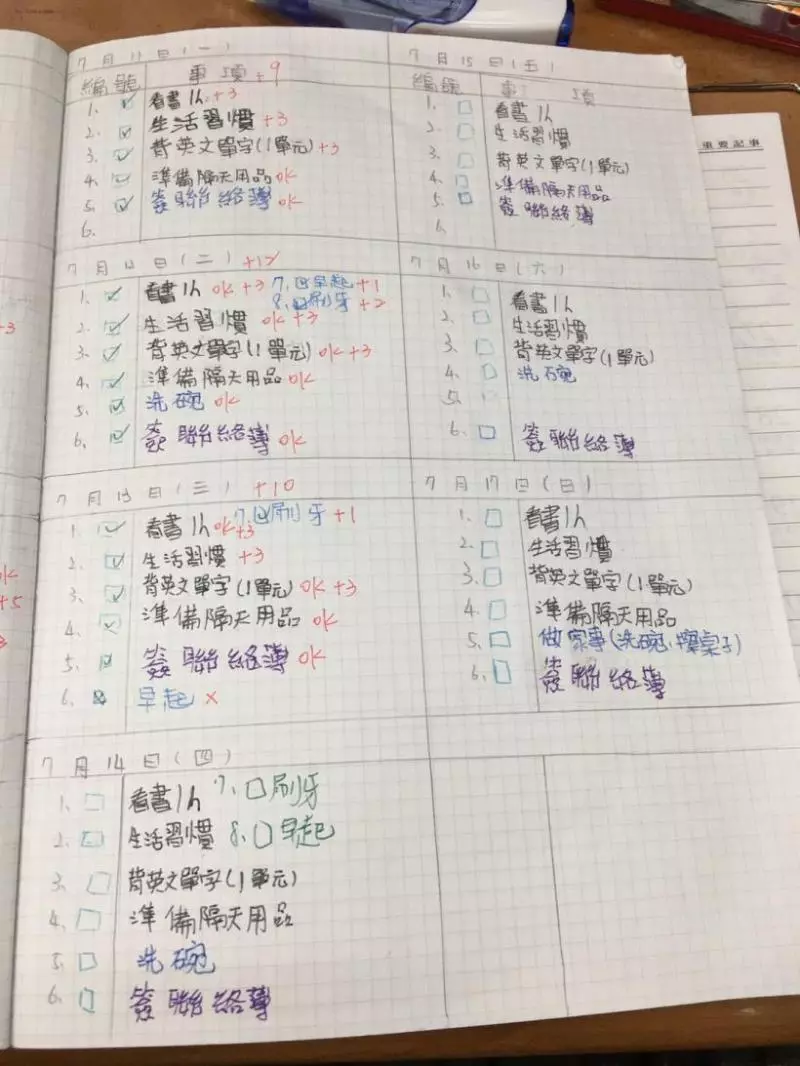 7月11日(一)
編號 事項 +9
1. 看書1h +3
2. 生活習慣 +3
3. 背英文單字(1單元) +3
4. 準備隔天用品 ok
5. 簽聯絡簿 ok
6.
7月12日(二) +12
1. 看書1h ok +3 7. 早起 +1
8. 刷牙 +2
2. 生活習慣 ok +3
3. 背英文單字(1單元) ok +3
4. 準備隔天用品 ok
5. 洗碗 ok
6. 簽聯絡簿 ok
7月13日(三) +10
1. 看書1h ok +3 7. 刷牙 +1
2. 生活習慣 +3
3. 背英文單字(1單元) ok +3
4. 準備隔天用品 ok
5. 簽聯絡簿 ok
6. 早起 ×
7月14日(四)
1. 看書1h 7. 刷牙
2. 生活習慣 8. 早起
3. 背英文單字(1單元)
4. 準備隔天用品
5. 洗碗
6. 簽聯絡簿
7月15日(五)
編號 事項
1. 看書1h
2. 生活習慣
3. 背英文單字(1單元)
4. 準備隔天用品
5. 簽聯絡簿
6.
7月16日(六)
1. 看書1h
2. 生活習慣
3. 背英文單字(1單元)
4. 洗碗
5.
6. 簽聯絡簿
7月17日(日)
1. 看書1h
2. 生活習慣
3. 背英文單字(1單元)
4. 準備隔天用品
5. 做家事(洗碗、擦桌子)
6. 簽聯絡簿
重要記事
+3
ok
+5
3